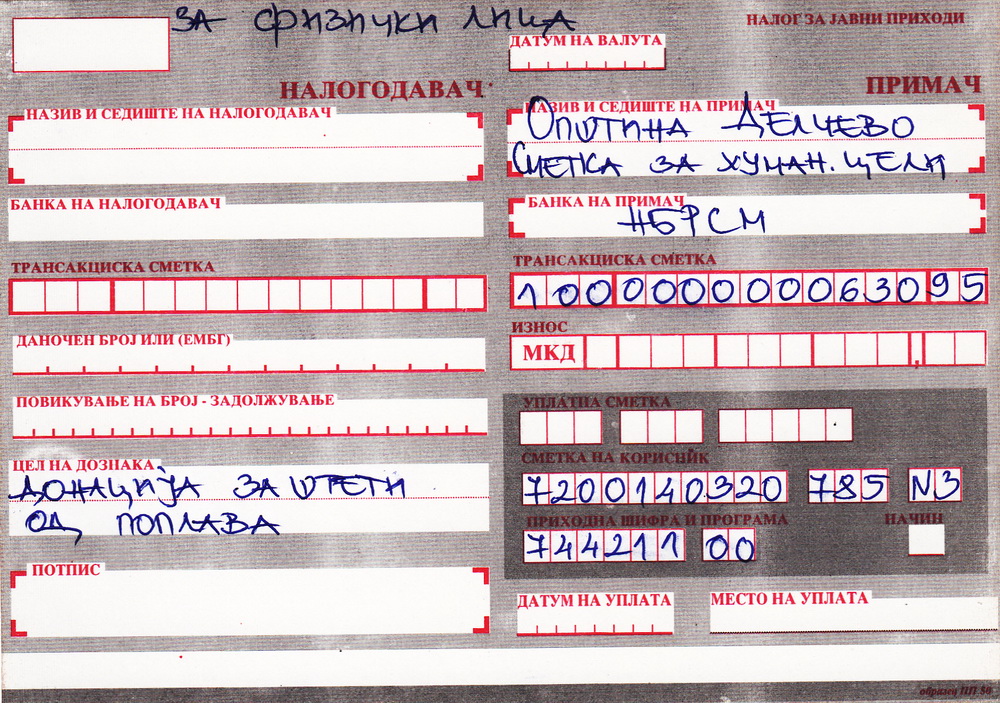 за физички лица
НАЛОГ ЗА ЈАВНИ ПРИХОДИ
ДАТУМ НА ВАЛУТА
НАЛОГОДАВАЧ
ПРИМАЧ
НАЗИВ И СЕДИШТЕ НА НАЛОГОДАВАЧ
НАЗИВ И СЕДИШТЕ НА ПРИМАЧ
Општина Делчево
Сметка за хуман. цели
БАНКА НА НАЛОГОДАВАЧ
БАНКА НА ПРИМАЧ
НБРСМ
ТРАНСАКЦИСКА СМЕТКА
ТРАНСАКЦИСКА СМЕТКА
100000000063095
ДАНОЧЕН БРОЈ ИЛИ (ЕМБГ)
ИЗНОС
МКД ,
ПОВИКУВАЊЕ НА БРОЈ - ЗАДОЛЖУВАЊЕ
УПЛАТНА СМЕТКА
ЦЕЛ НА ДОЗНАКА
Донација за штети
од поплава
СМЕТКА НА КОРИСНИК
7200140320 785 N3
ПРИХОДНА ШИФРА И ПРОГРАМА
НАЧИН
744211 00
ПОТПИС
ДАТУМ НА УПЛАТА
МЕСТО НА УПЛАТА
образец ПП 50